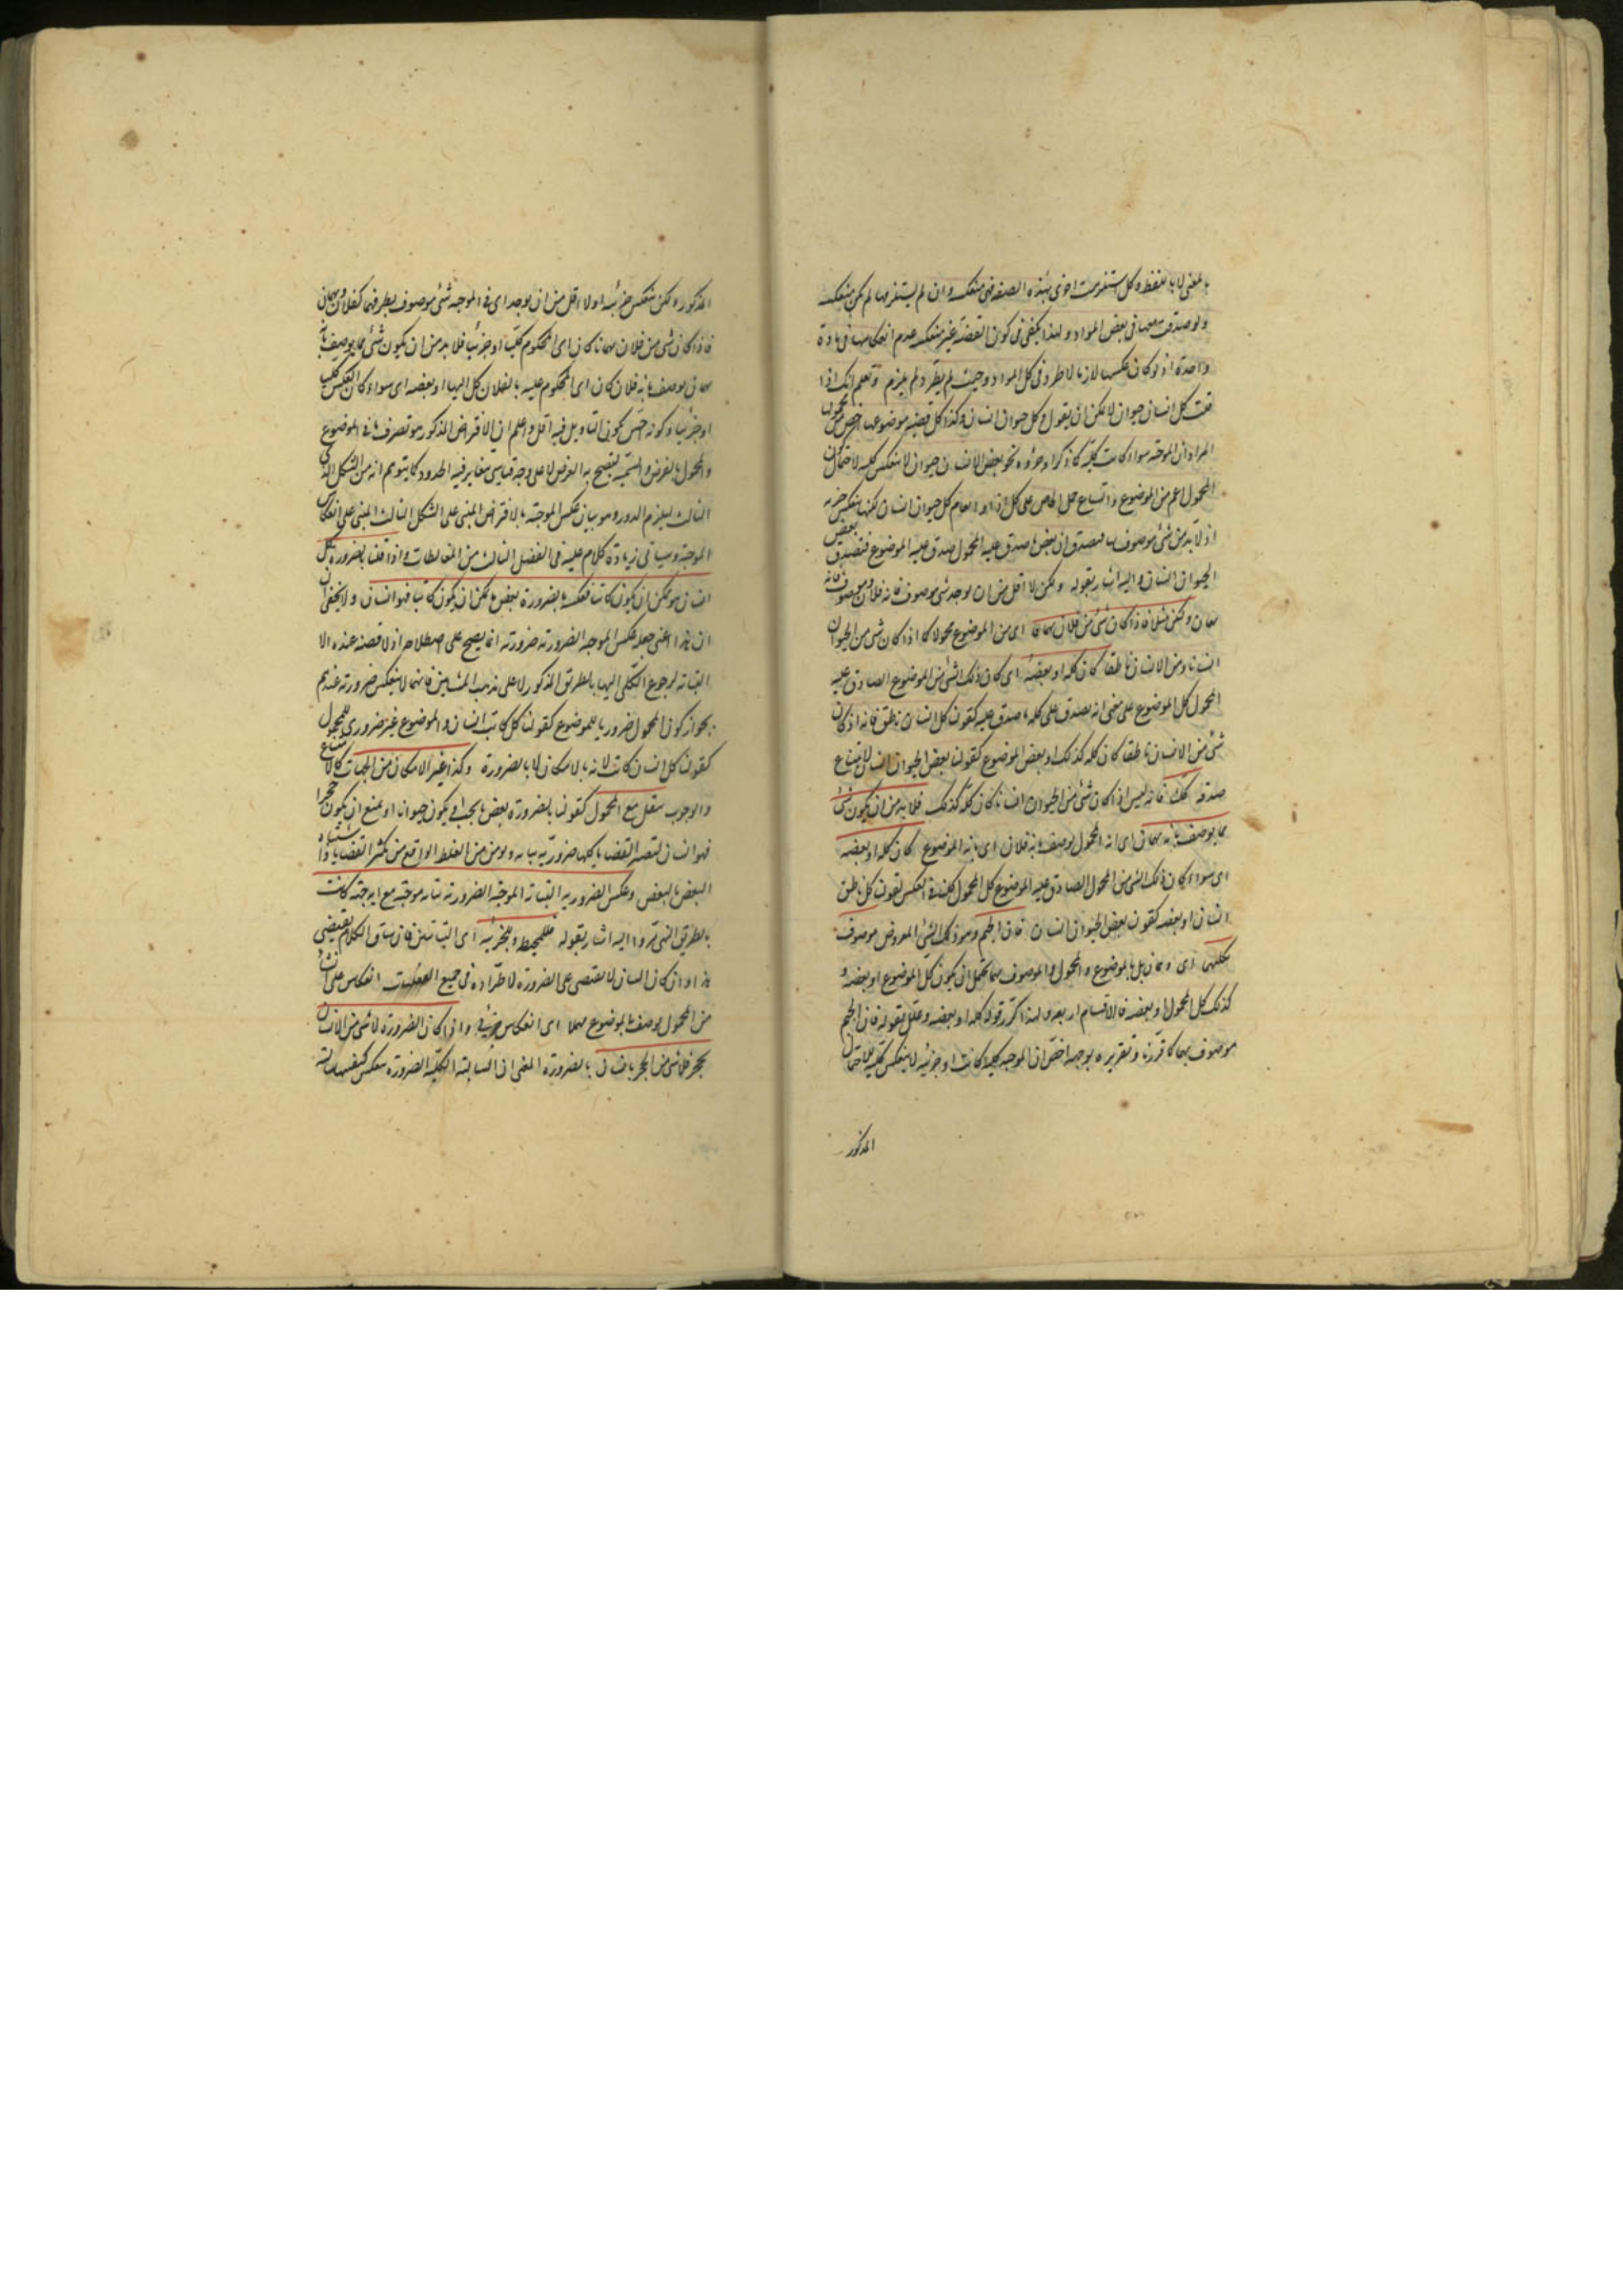 بالمعنى لا باللفظ وكل استلزمت اخرى بهذه الصفة فهى منعكسة وان لم يستلزمها لم يكن منعكسة
ولو صدقت معها فى بعض المواد ولهذا يكفى فى كون القضية غير منعكسة عدم انعكاسها فى مادة
واحدة اذ لو كان عكسها لازما لاطرد فى كل المواد وحيث لم يطرد لم يلزم وتعلم انك اذا
قلت كل انسان حيوان لا يمكن ان يقول وكل حيوان انسان وكذا كل قضية موضوعها اخص من محمولها
المراد ان الموجبة سواء كانت كلية كما ذكر او جزئية نحو بعض الانسان حيوان لا ينعكس كلية لاحتمال ان
المحمول اعم من الموضوع وامتناع حمل الخاص على كل افراد العام كل حيوان انسان لكنها ينعكس جزئية
اذ لا بد من شئ موصوف بهما فيصدق ان بعض ما صدق عليه المحمول صدق عليه الموضوع فيصدق بعض
الحيوان انسان واليه اشار بقوله ولكن لا اقل من ان يوجد شئ موصوف بانه فلان وموصوف بانه
بهمان وليكن مثلا فاذا كان شئ من فلان بهمانا اى من الموضوع محمولا كما اذا كان شئ من الحيوان
انسانا ومن الانسان ناطقا كان كله او بعضه اى كان ذلك الشئ من الموضوع الصادق عليه
المحمول كل الموضوع على معنى انه يصدق على كله ما صدق عليه كقولنا كل انسان ناطق فانه اذ كان
شئ من الانسان ناطقا كان كله كذلك او بعض الموضوع كقولنا بعض الحيوان انسان لامتناع
صدقه كليا فانه ليس اذا كان شئ من الحيوان انسانا كان كله كذلك فلا بد من ان يكون شئ
مما يوصف بانه بهمان اى انه المحمول يوصف بانه فلان اى بانه الموضوع كان كله او بعضه
اى سواء كان ذلك الشئ من المحمول الصادق عليه الموضوع كل المحمول كلية فى العكس كقولنا كل ناطق
انسان او بعضه كقولنا بعض الحيوان انسان فان الجيم وهو ذلك الشئ المفروض موصوف
بكليهما اى وبمان بل بالموضوع والمحمول والموصوف بهما يحتمل ان يكون كل الموضوع او بعضه و
كذلك كل المحمول او بعضه فالاقسام اربعة ولهذا كرر قوله كله او بعضه وعلل بقوله فان الجيم
موصوف بهما كما قررنا وتقريره بوجه اخصر ان الموجبة كلية كانت او جزئية لا ينعكس كلية للاحتمال
المذكور
المذكور ولكن ينعكس جزئية اذ لا اقل من ان يوجد اى فى الموجبة شئ موصوف بطرفيها كفلان وبهمان
فاذا كان شئ من فلان بهمانا كان اى المحكوم كليا او جزئيا فلا بد من ان يكون شئ مما يوصف بانه
بهمان يوصف بانه فلان كان اى المحكوم عليه بالفلان كل البها او بعضه اى سواء كان العكس كليا
او جزئيا وكونه احسن لكون التاويل فيه اقل واعلم ان الافتراض المذكور هو تصرف ما فى الموضوع
والمحمول بالفرض والتسمية ليتضح به الغرض لا على وجه قياسى مغاير فيه الحدود كما يتوهم انه من الشكل
الثالث ليلزم الدور وهو بيان عكس الموجبة بالافتراض المبنى على الشكل الثالث المبنى على انعكاس
الموجبة وسياتى زيادة كلام عليه فى الفصل الثالث من المغالطات واذا قلنا بالضرورة كل
انسان هو ممكن ان يكون كاتبا فعكسه بالضرورة بعض ما يمكن ان يكون كاتبا فهو انسان ولا يخفى
ان هذا اعنى جعله عكس الموجبة الضرورية ضرورية انما يصح على اصطلاحه اذ لا قضية عنده الا
البتاتة لرجوع الكلى اليها بالطريق المذكور لا على مذهب المشائين فانها لا ينعكس ضرورية عندهم
لجواز كون المحمول ضروريا للموضوع كقولنا كل كاتب انسان والموضوع غير ضرورى للمحمول
كقولنا كل انسان كاتب لانه بالامكان لا بالضرورة وكذا غير الامكان من الجهات كالامتناع
والوجوب ينتقل مع المحمول كقولنا بالضرورة بعض ما يجب ان يكون حيوانا او يمتنع ان يكون حجرا
فهو انسان لتصير القضايا كلها ضرورية بتاتة ويؤمن من الغلط الواقع من تكثر القضايا واشتباه
البعض بالبعض وعكس الضرورية البتاتة الموجبة الضرورية بتاتة موجبة مع اية جهة كانت
بالطريق الذى مر واليه اشار بقوله فللمحيطة وللجزئية اى البتاتتين فان سياق الكلام يقتضى
هذا وان كان البيان لا يقتصر على الضرورة لاطراده فى جميع الفعليات انعكاس على ان شيئا
من المحمول يوصف بالموضوع مهملا اى انعكاس جزئى واذا كان بالضرورة لا شئ من الانسان
بحجر فلا شئ من الحجر بانسان بالضرورة المعنى ان السالبة الكلية الضرورة تنعكس كنفسها سالبة